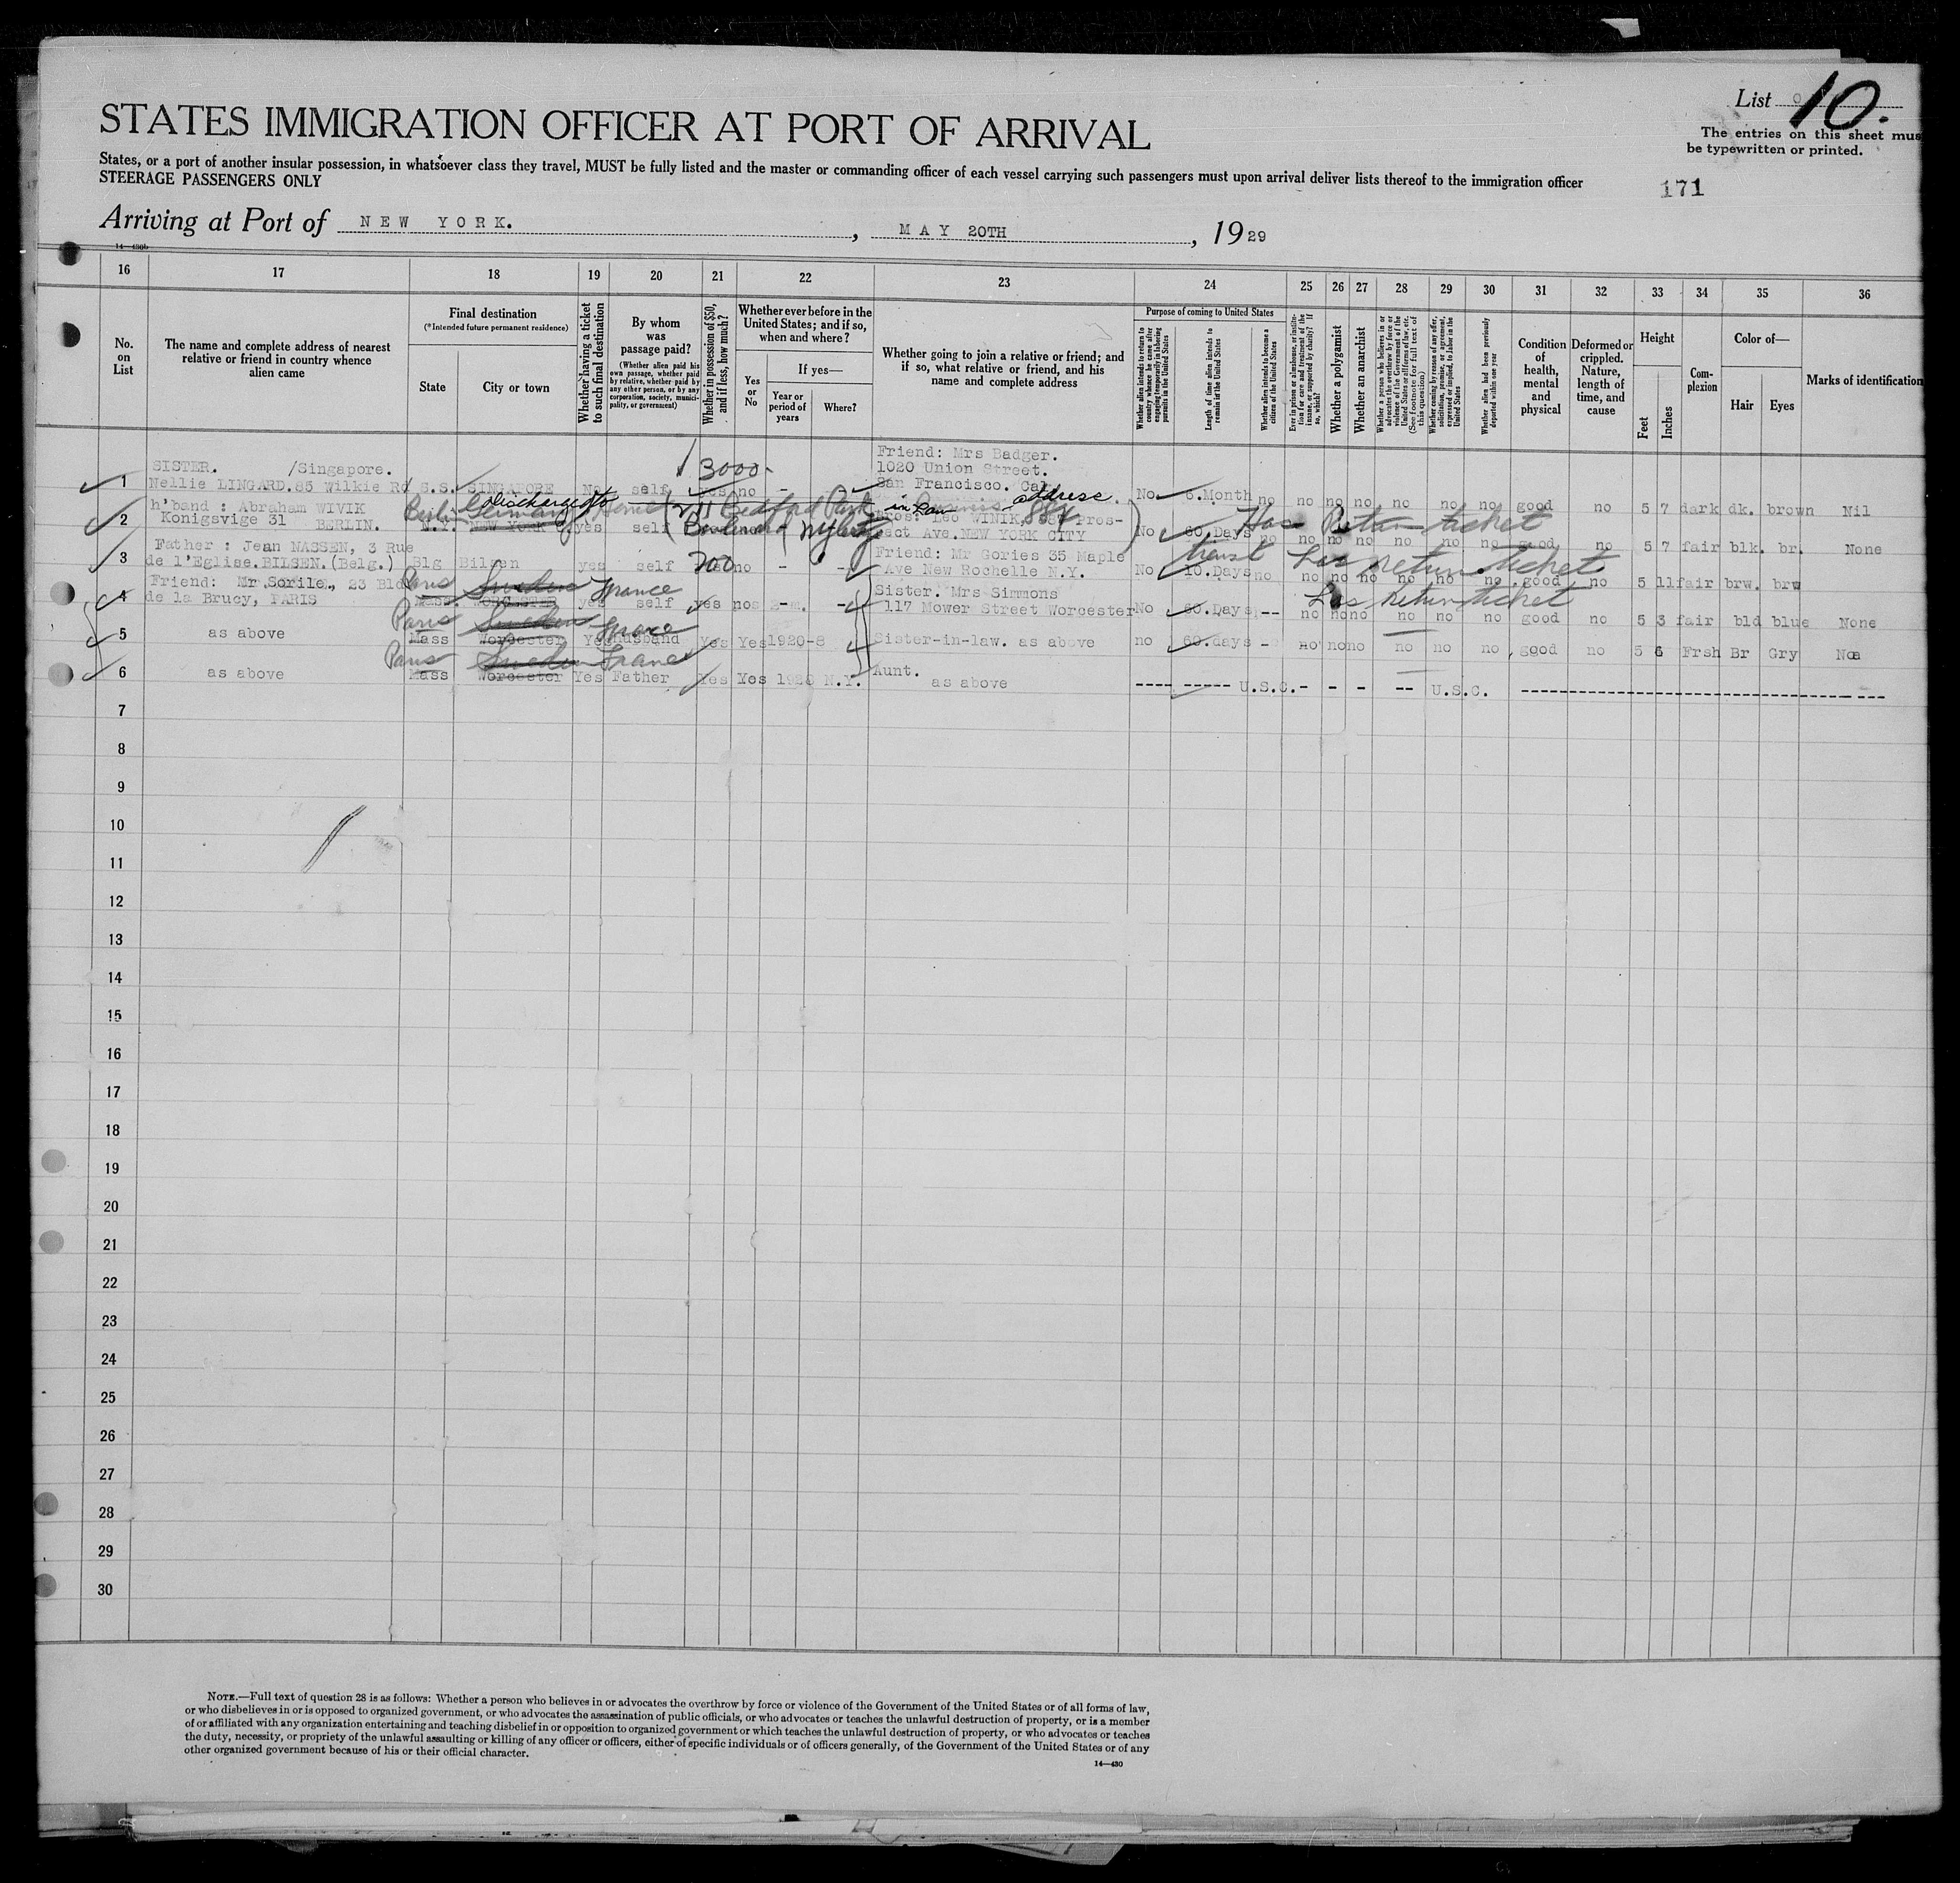 List 10.
STATES IMMIGRATION OFFICER AT PORT OF ARRIVAL
The entries on this sheet mus
be typewritten or printed.
States, or a port of another insular possession, in whatsoever class they travel, MUST be fully listed and the master or commanding officer of each vessel carrying such passengers must upon arrival deliver lists thereof to the immigration officer
STEERAGE PASSENGERS ONLY
171
Arriving at Port of NEW YORK. , MAY 20TH , 1929
14—430b
16 17 18 19 20 21 22 23 24 25 26 27 28 29 30 31 32 33 34 35 36
No. on List
The name and complete address of nearest relative or friend in country whence alien came
Final destination
(*Intended future permanent residence)
State
City or town
Whether having a ticket to such final destination
By whom was passage paid?
(Whether alien paid his own passage, whether paid by relative, whether paid by any other person, or by any corporation, society, municipality, or government)
Whether in possession of $50, and if less, how much?
Whether ever before in the United States; and if so, when and where?
Yes or No
If yes—
Year or period of years
Where?
Whether going to join a relative or friend; and if so, what relative or friend, and his name and complete address
Purpose of coming to United States
Whether alien intends to return to country whence he came after engaging temporarily in laboring pursuits in the United States
Length of time alien intends to remain in the United States
Whether alien intends to become a citizen of the United States
Ever in prison or almshouse, or institution for care and treatment of the insane, or supported by charity? If so, which?
Whether a polygamist
Whether an anarchist
Whether a person who believes in or advocates the overthrow by force or violence of the Government of the United States or all forms of law, etc. (See footnote for full text of this question)
Whether coming by reason of any offer, solicitation, promise, or agreement, expressed or implied, to labor in the United States
Whether alien had been previously deported within one year
Condition of health, mental and physical
Deformed or crippled. Nature, length of time, and cause
Height
Feet
Inches
Complexion
Color of—
Hair
Eyes
Marks of identification
SISTER. /Singapore. 3000- Friend: Mrs Badger.
1020 Union Street.
1 Nellie LINGARD.85 Wilkie Rd S.S. SINGAPORE No self yes no - San Francisco. Cal. No 6.Month no no no no no no no good no 5 7 dark dk. brown Nil
Discharged to 2711 Bedford Park in Law address
h'band : Abraham WIVIK Berlin Germany Brooklyn Bros: Leo WINIK, 887 Pros- Has Return ticket
2 Konigsvige 31 BERLIN. N.Y. NEW YORK yes self pect Ave.NEW YORK CITY No 60.Days no no no no no no no good no 5 7 fair blk. br. None
Father : Jean NASSEN, 3 Rue 200 Friend: Mr Gories 35 Maple transit Has return ticket
3 de l'Eglise.BILSEN.(Belg.) Blg Bilsen yes self no - - Ave New Rochelle N.Y. No 10.Days no no no no no no no good no 5 11 fair brw. brw
Friend: Mr Sorile., 23 Bld Paris Sweden France Sister. Mrs Simmons Has return ticket
4 de la Brucy, PARIS Mass. WORCESTER yes self yes no 117 Mower Street Worcester No 60.Days -- no no no no no no good no 5 3 fair bld blue None
Paris Sweden France
5 as above Mass Worcester Yes husband Yes Yes 1920-8 Sister-in-law. as above no 60.days - no no no no no no good no 5 6 Frsh Br Gry
Paris Sweden France Aunt.
6 as above Mass Worcester Yes Father Yes Yes N.Y. as above ---- ----- U.S.C.- - - -- U.S.C. -----
7
8
9
10
11
12
13
14
15
16
17
18
19
20
21
22
23
24
25
26
27
28
29
30
NOTE.—Full text of question 28 is as follows: Whether a person who believes in or advocates the overthrow by force or violence of the Government of the United States or of all forms of law,
or who disbelieves in or is opposed to organized government, or who advocates the assassination of public officials, or who advocates or teaches the unlawful destruction of property, or is a member
of or affiliated with any organization entertaining and teaching disbelief in or opposition to organized government or which teaches the unlawful destruction of property, or who advocates or teaches
the duty, necessity, or propriety of the unlawful assaulting or killing of any officer or officers, either of specific individuals or of officers generally, of the Government of the United States or of any
other organized government because of his or their official character.
14—430